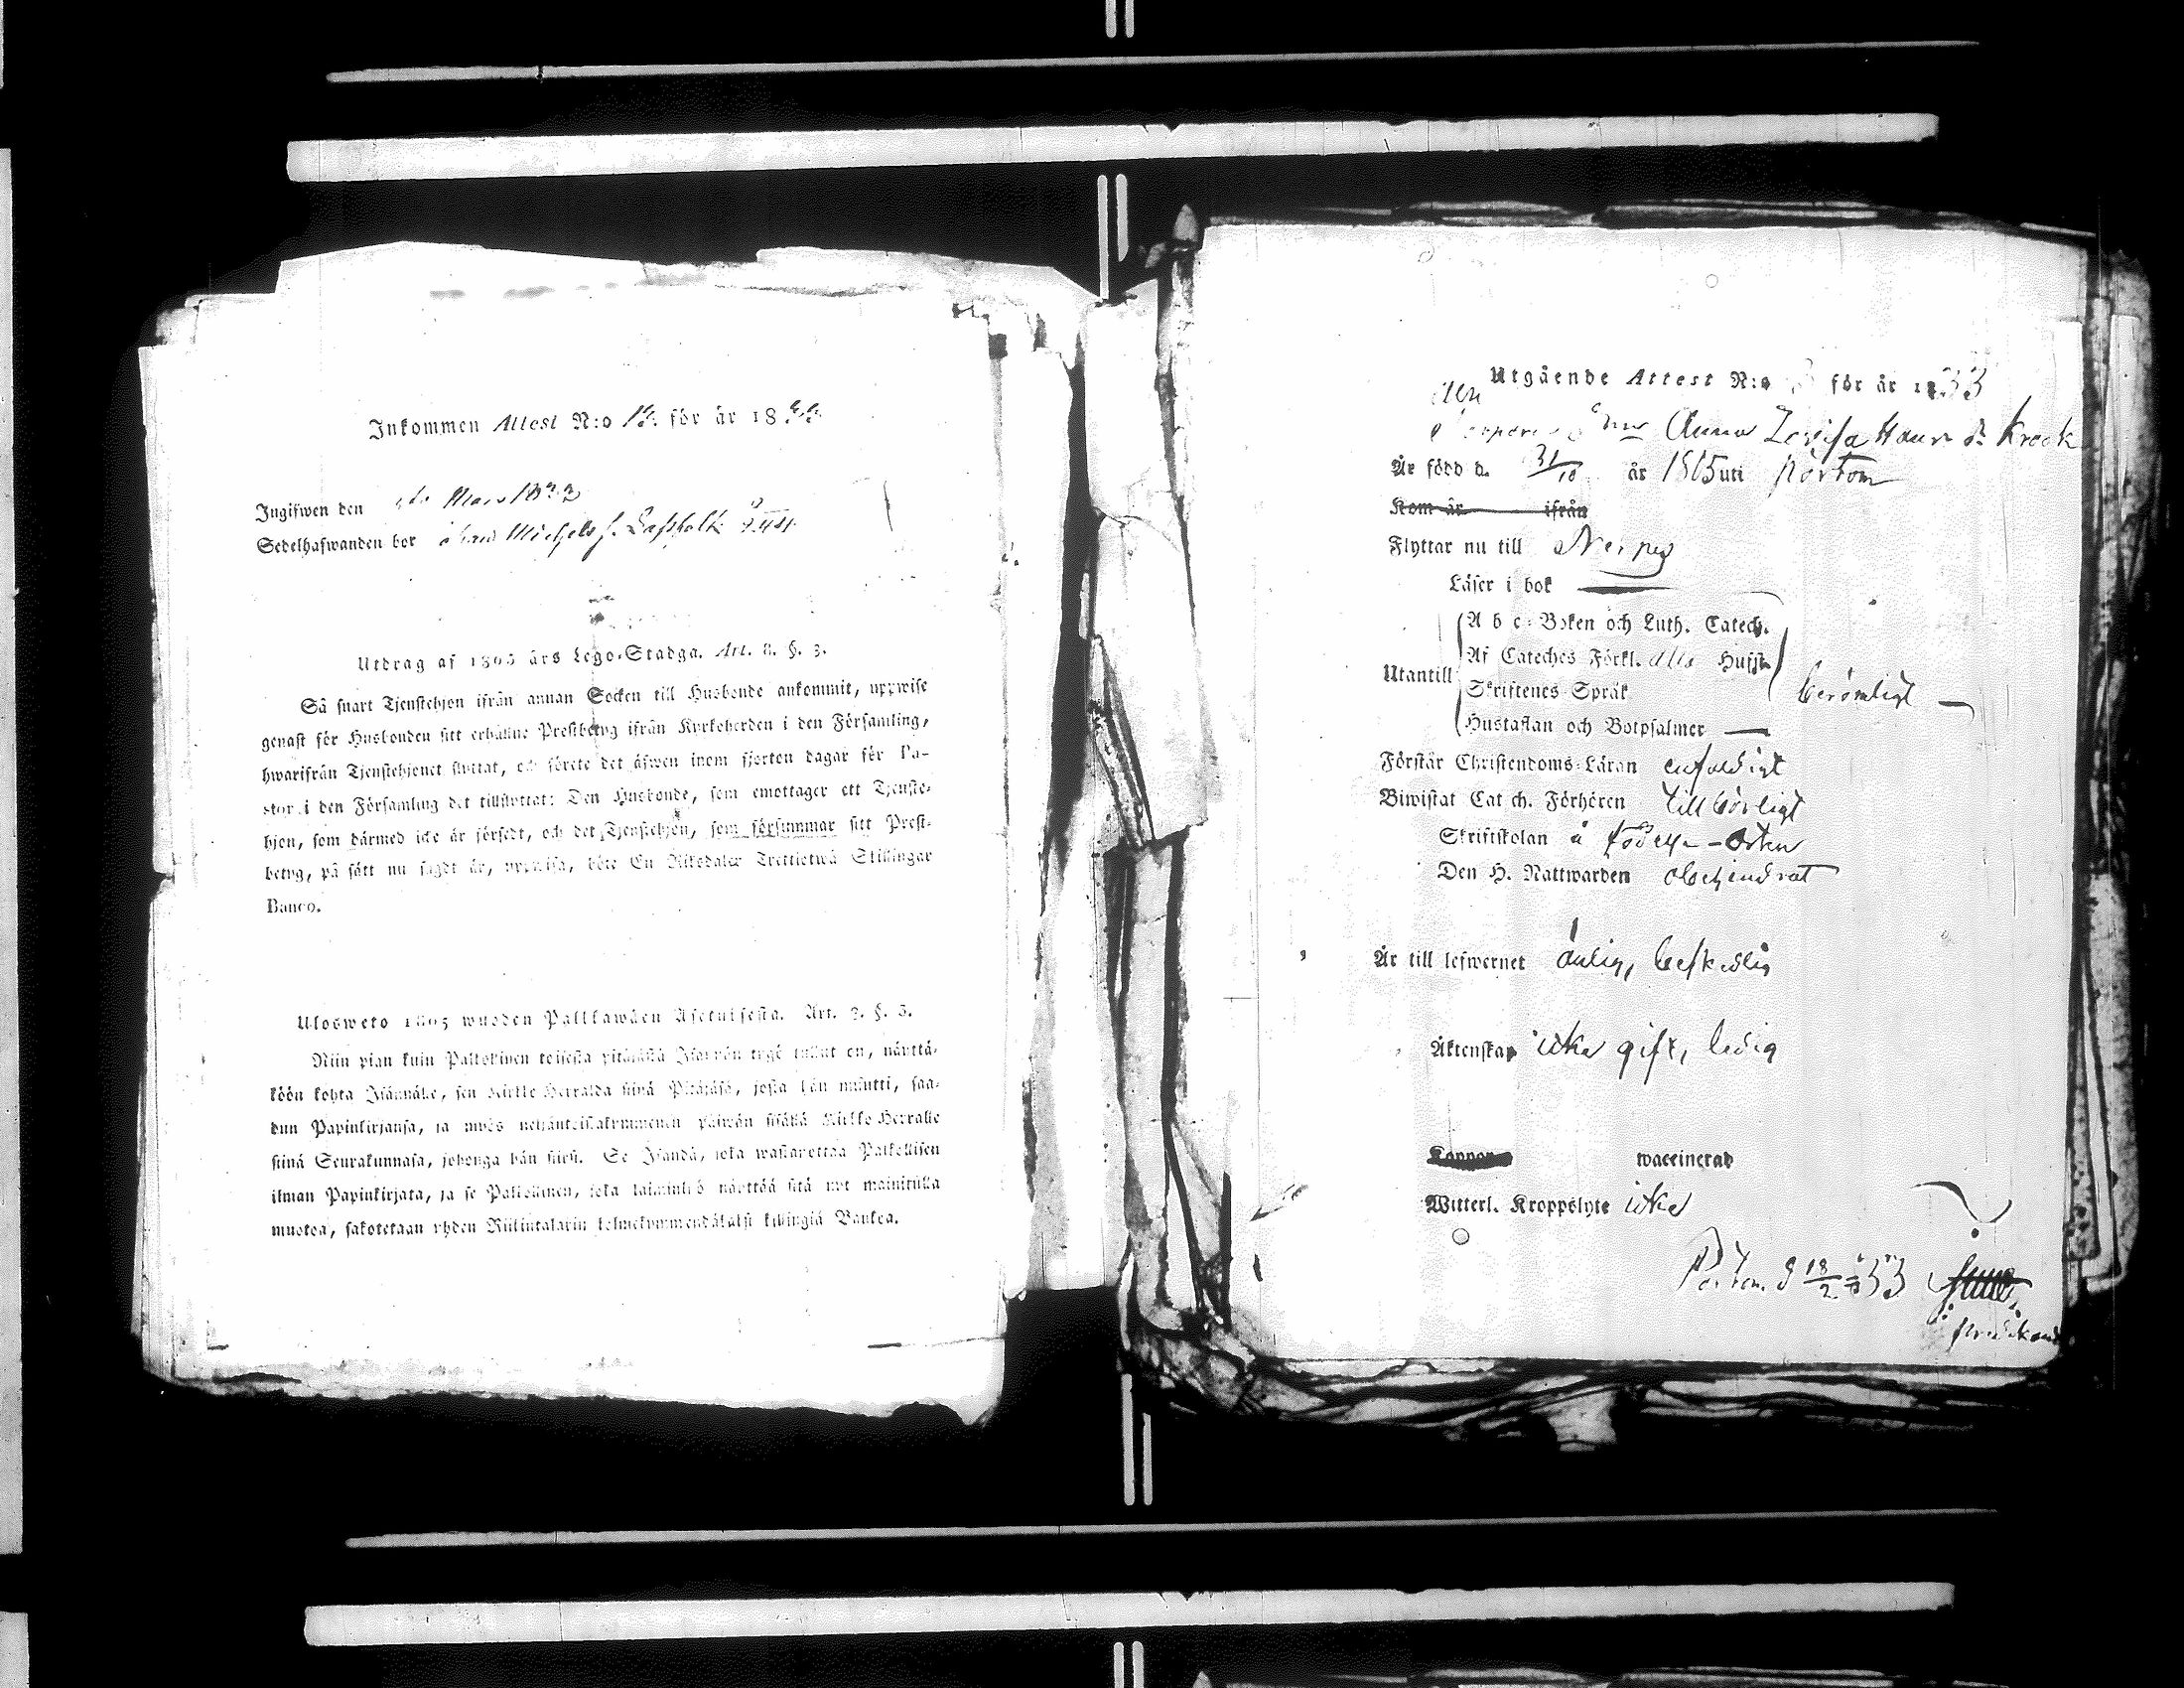 Inkommen Attest N:o för år 18
Ingifwen den Mars 1833
Sedelhafwanden bor Michels
Utdrag af 1805 års Lego-Stadga. Art. 8. §. 3.
Så snart Tjenstehjon ifrån annan Socken till Husbonde ankommit, uppwise
genast för Husbonden sitt erhållne Prestbetyg ifrån Kyrkoherden i den Församling,
hwarifrån Tjenstehjonet flyttat, och förete det äfwen inom fjorton dagar för Pa-
stor i den Församling det tillflyttat: Den Husbonde, som emottager ett Tjenste-
hjon, som därmed icke är försedt, och det Tjenstehjon, som försummar sitt Prest-
betyg, på sätt nu sagdt är, uppwisa, böte En Riksdaler Trettietwå Skillingar
Banco.
Ulosweto 1805 wuoden Palkkawäen Asetuisesta. Art. 8. §. 3.
Niin pian kuin Palkollinen toisesta pitäjästä Isännän tygö tullut on, näyttä-
köön kohta Isännälle, sen Kirkko Herralda siinä Pitäjäsä, josta hän muutti, saa-
dun Papinkirjansa, ja myös neljäntoistakymmenen päiwän sisällä Kirkko Herralle
siinä Seurakunnasa, johonga hän siirsi. Se Isändä, joka wastaanottaa Palkollisen
ilman Papinkirjata, ja se Palkollinen, joka laiminlyö näyttää sitä nyt mainitulla
muotoa, sakotetaan yhden Riikintalarin kolmekymmendäkaksi killingiä Bankoa.
Utgående Attest N:o 3 för år 1833
Anna Lovisa Hans dr Krook
Är född d. 31/10 år 1815 uti Pörtom
Kom år ifrån
Flyttar nu till Nerpes
Läser i bok
A b c-Boken och Luth. Catech.
Af Cateches Förkl. alla Hufst.
Utantill
Skriftenes Språk
berömligt
Hustaflan och Botpsalmer
Förstår Christendoms-Läran enfaldigt
Biwistat Catech. Förhören tillbörligt
Skriftskolan å födelse-Orten
Den H. Nattwarden obehindrat
Är till lefwernet ärlig, beskedlig
Äktenskap icke gift, ledig
Koppor waccinerad
Witterl. Kroppslyte icke
Pörtom d 18/2 1833